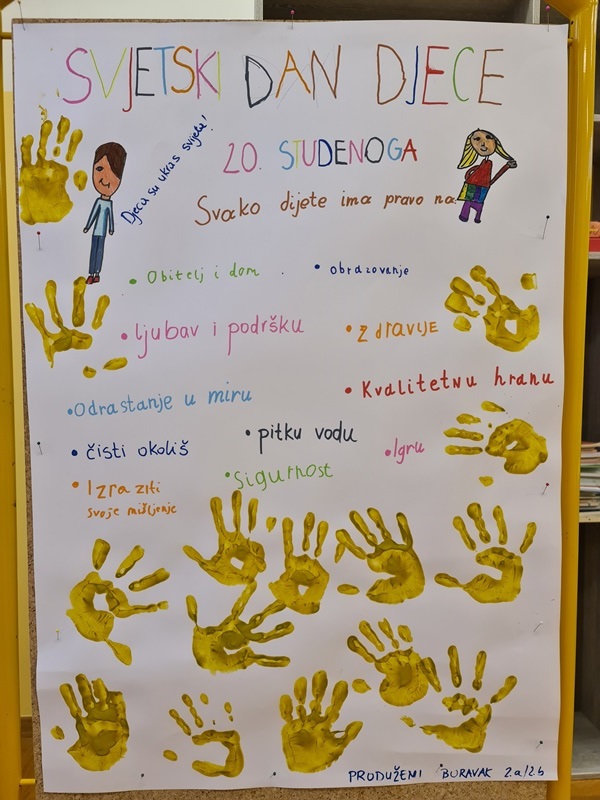 SVJETSKI DAN DJECE
Djeca su ukras svijeta!
20. STUDENOGA
Svako dijete ima pravo na:
• Obitelj i dom
• obrazovanje
• ljubav i podršku
• zdravlje
• Odrastanje u miru
• Kvalitetnu hranu
• čisti okoliš
• pitku vodu
• Igru
• Izraziti
svoje mišljenje
• Sigurnost
PRODUŽENI BORAVAK 2a/2b